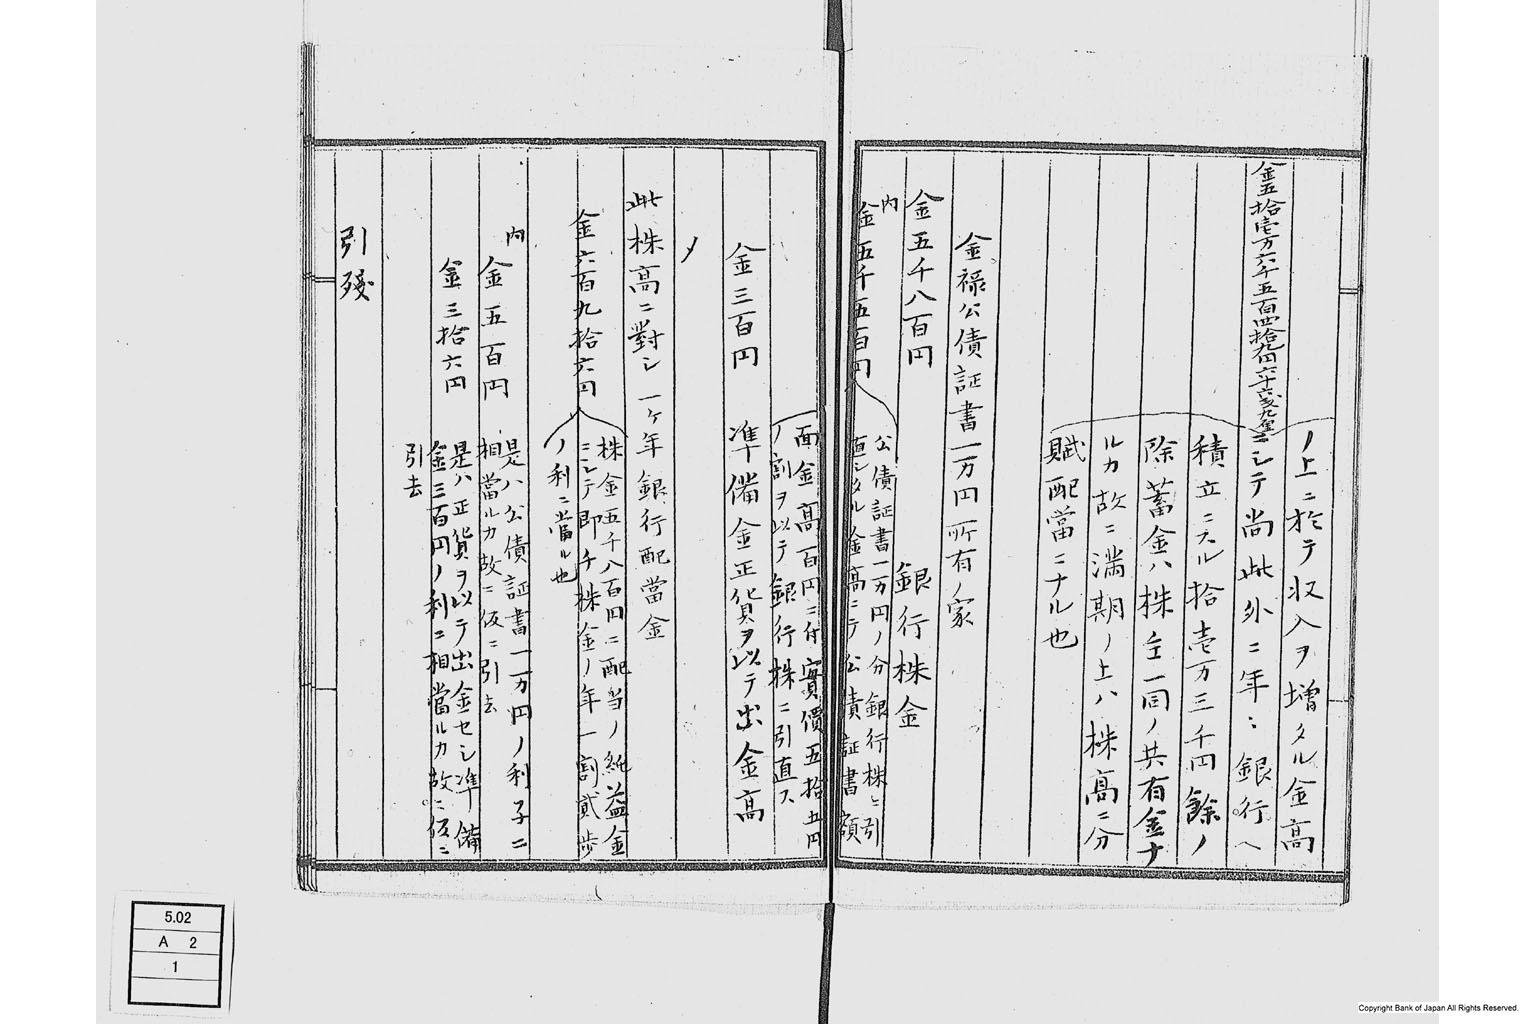 ノ上ニ於テ収入ヲ増タル金高
金五拾壱万六千五百四拾九円六十六戔九厘ニシテ尚此外ニ年ニ銀行ヘ
積立ニナル拾壱万三千円餘ノ
除蓄金ハ株主一同ノ共有金ナ
ルカ故ニ満期ノ上ハ株高ニ分
賦配當ニナル也
金禄公債証書一万円所有ノ家
金五千八百円 銀行株金
内
金五千五百円
公債証書一万円ノ分銀行株ニ引
直シタル金高ニテ公債証書額
面金高百円ニ付實價五拾五円
ノ割ヲ以テ銀行株ニ引直ス
金三百円 準備金正貨ヲ以テ出金高
〆
此株高ニ對シ一ヶ年銀行配當金
金六百九拾六円
株金五千八百円ニ配当ノ純益金
ニシテ即チ株金ノ年一割貳歩
ノ利ニ當ル也
内
金五百円
是ハ公債証書一万円ノ利子ニ
相當ルカ故ニ仮ニ引去
金三拾六円
是ハ正貨ヲ以テ出金セシ準備
金三百円ノ利ニ相當ルカ故ニ仮ニ
引去
引殘
5.02
A 2
1
Copyright Bank of Japan All Rights Reserved.